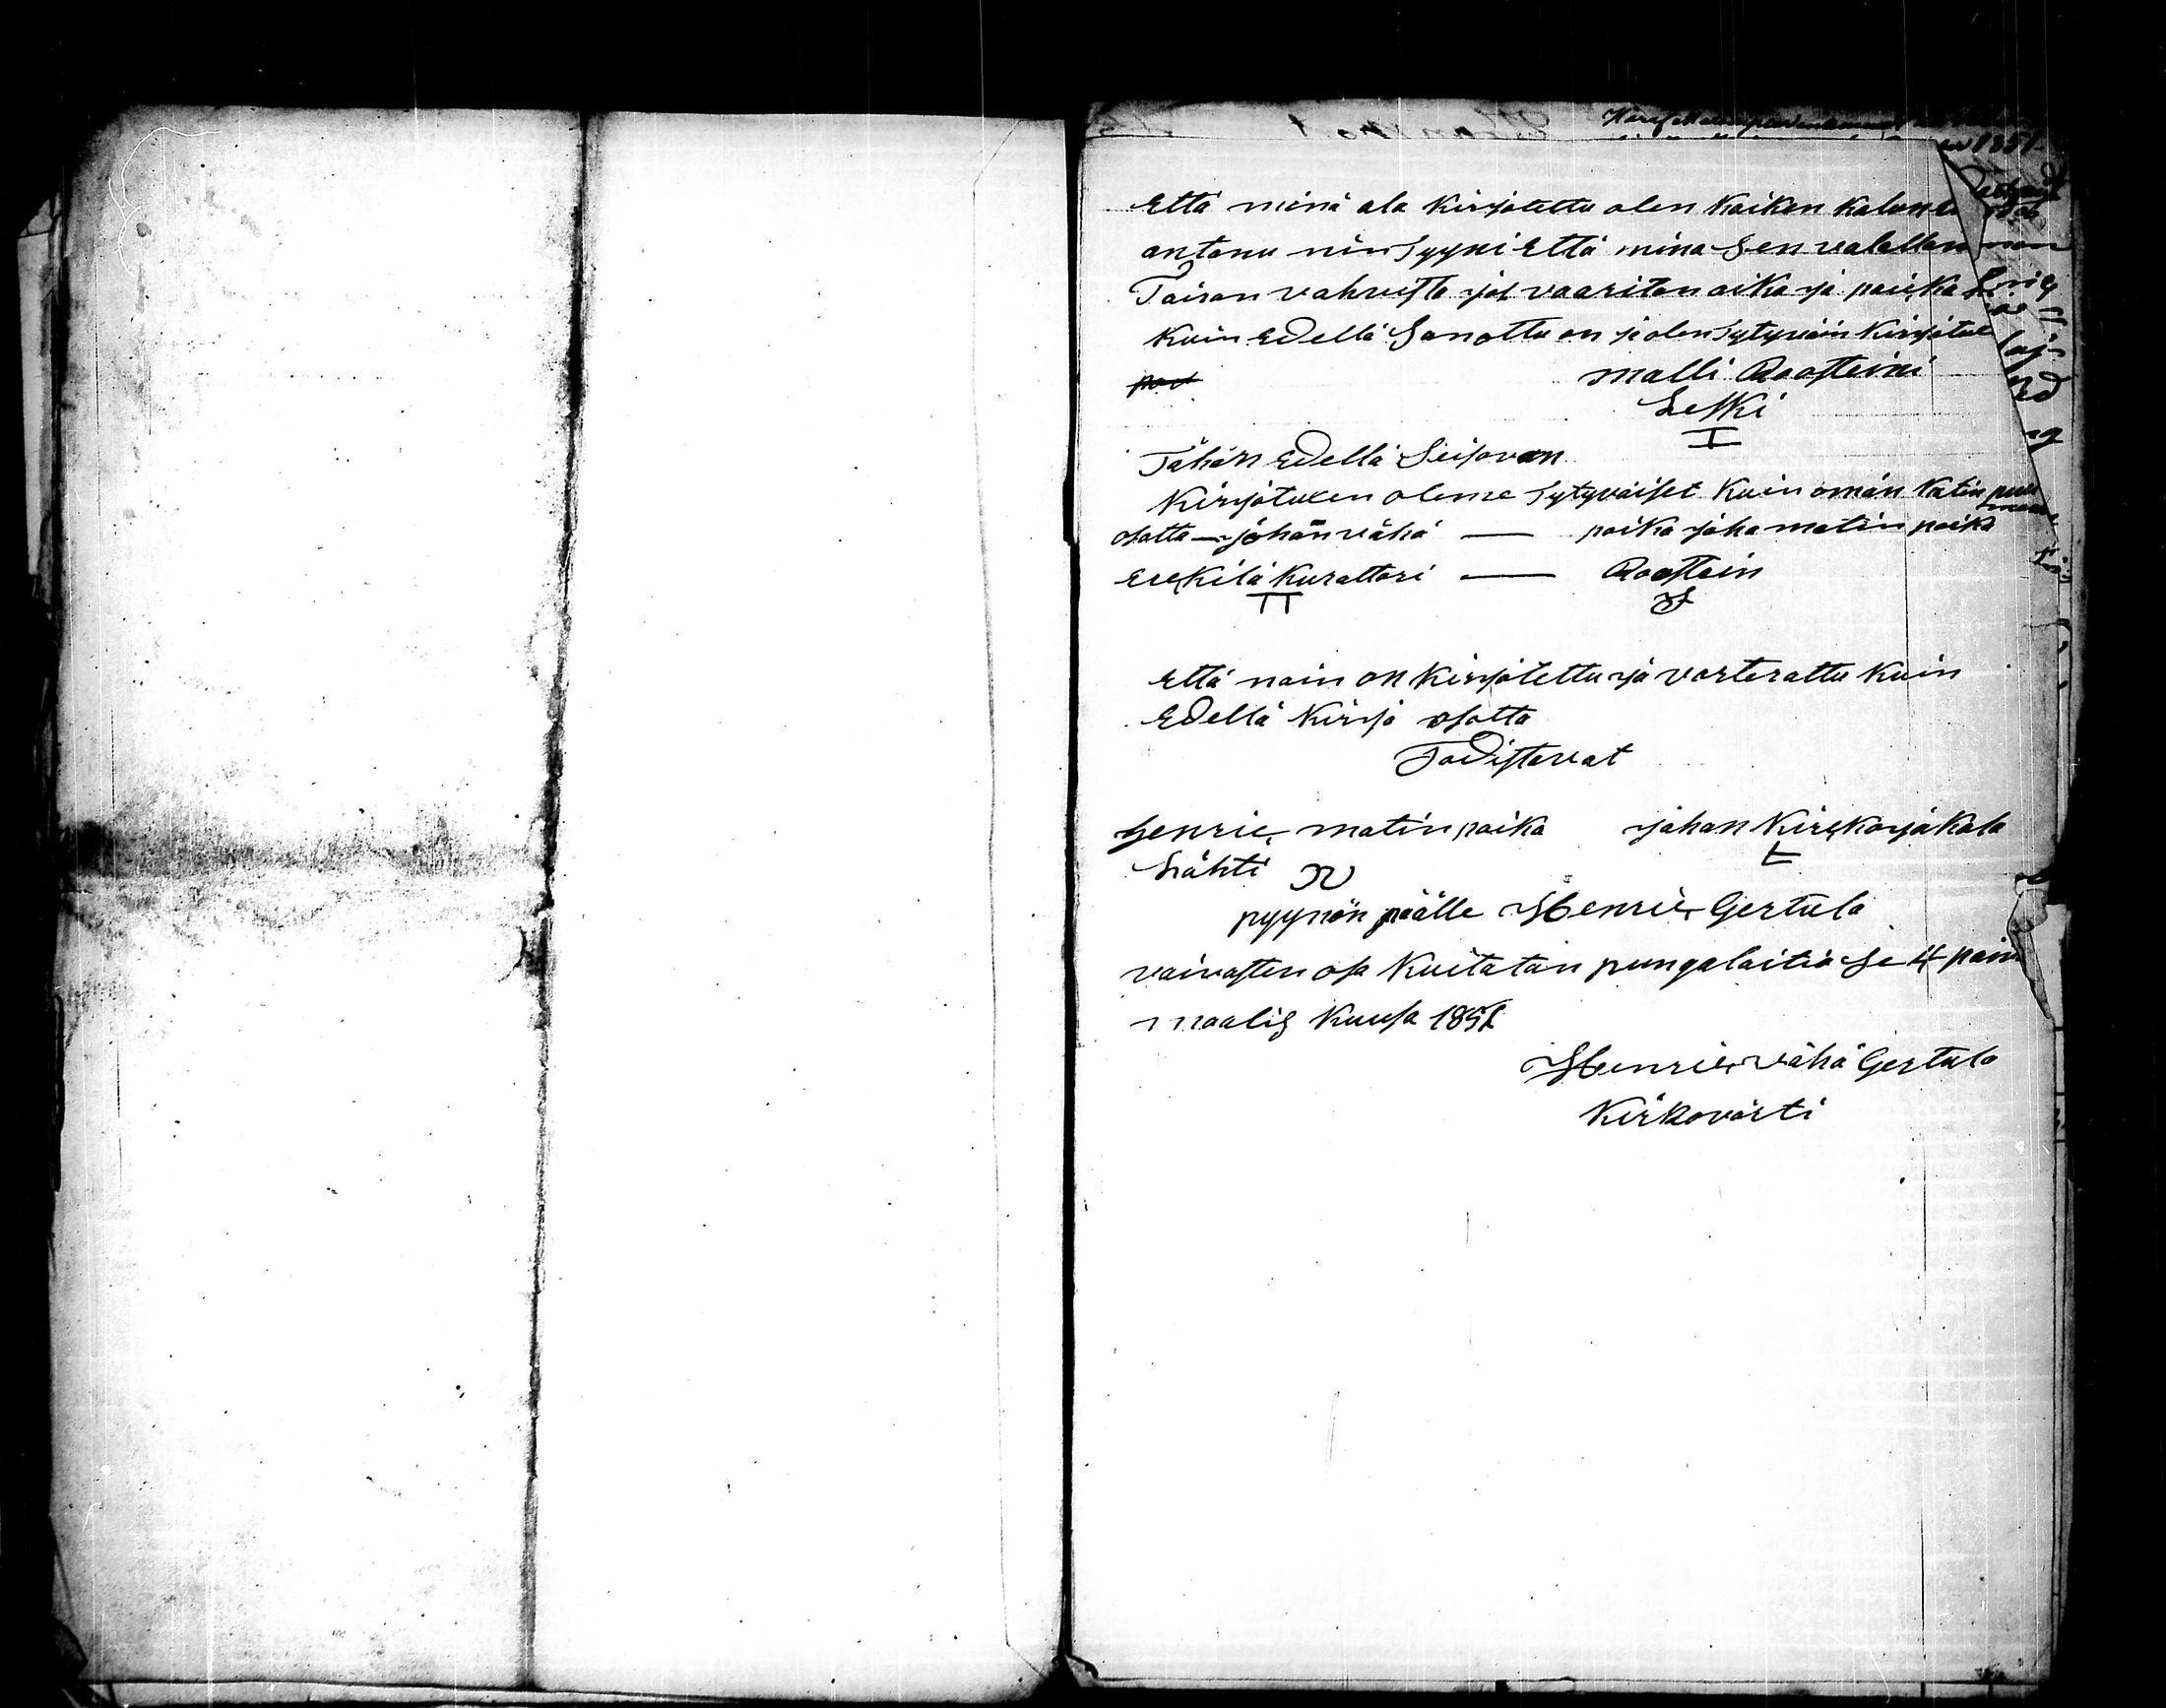 Että minä ala Kirjotettu olen Kaiken Kalun
antanu nin Syyni Että mina Sen valallan
Taisan vahvista jos vaaritan aika ja paicka
Kuin Edellä Sanottu on ja olen Sytyväin Kirjituxe
Malli Roosteini
Leski
I
Tähän Edellä Seisovan
Kirjotuxen olemme Sytyväiset Kuin omän Kätin puu
osotta — johan vähä — poika joha matin poika
Erckilä Kurattori — Roostein
II
Että näin on Kirjotettu ja varterattu Kuin
Edellä Kirja osotta
Todistavat
Henric matin poika johan Kirckorjakola
Lähti
pyynön päälle Henric Gertula
vaivasten osa Kuitatan pungalaitia Se 4 päiv
maalis Kuusa 1851
Henric vähä Gertula
Kirkovärti
1851